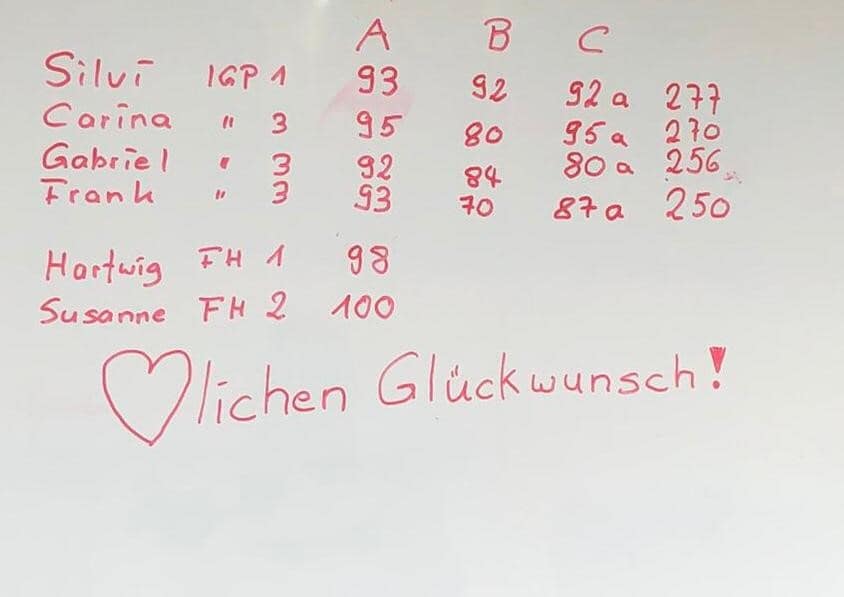 A B C
Silvi IGP 1 93 92 92 a 277
Carina " 3 95 80 95 a 270
Gabriel " 3 92 84 80 a 256
Frank " 3 93 70 87 a 250
Hartwig FH 1 98
Susanne FH 2 100
♡lichen Glückwunsch!